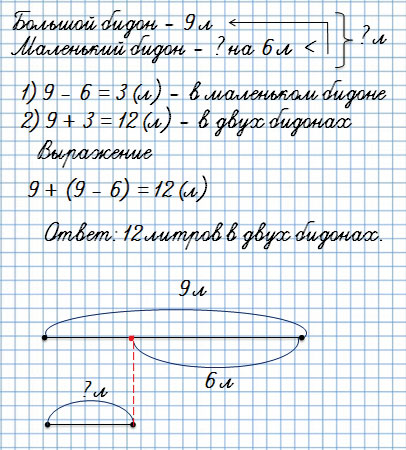 Большой бидон – 9 л
Маленький бидон – ? на 6 л < ? л
1) 9 – 6 = 3 (л) – в маленьком бидоне
2) 9 + 3 = 12 (л) – в двух бидонах
Выражение
9 + (9 – 6) = 12 (л)
Ответ: 12 литров в двух бидонах.
9 л
6 л
? л